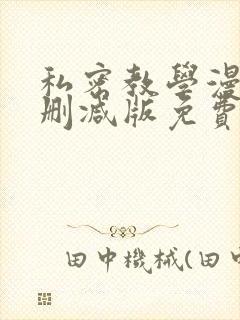 私密教學漫
刪減版免費
田中機械(田中